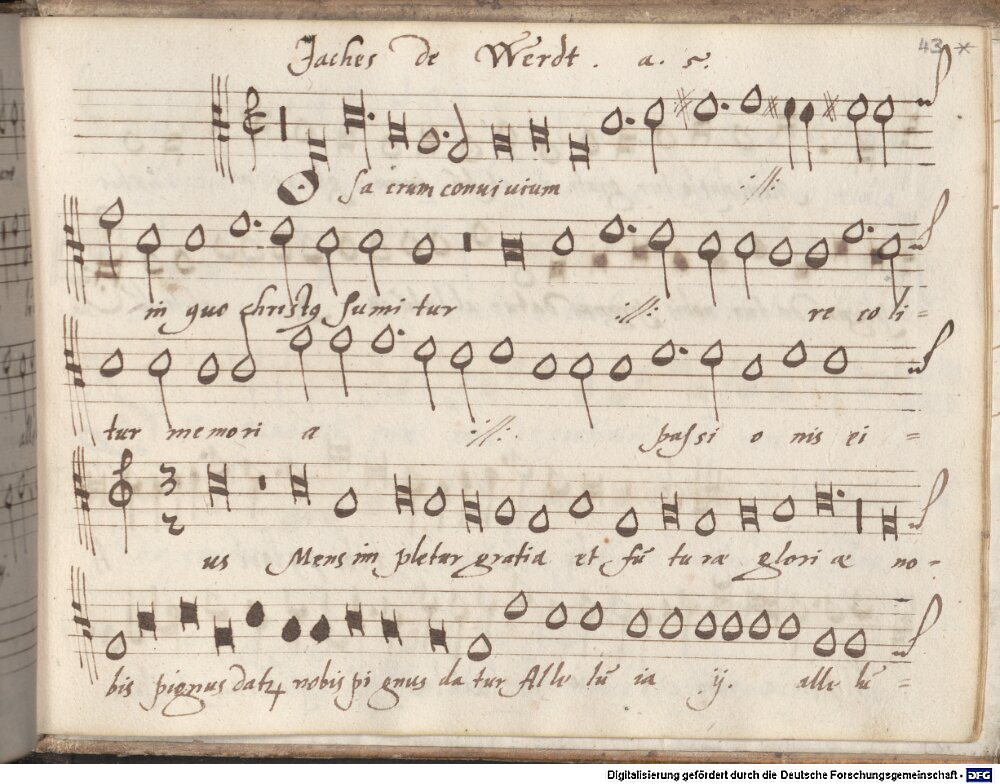 Jaches de Werdt. a. 5.
43 *
Sacrum convivium :||:
in quo christ9 sumitur :||: re coli=
tur memoria :||: passionis ei=
3
2
us Mens impletur gratia et fū turæ gloriæ no-
bis pignus dat nobis pignus datur Alle lū ia ij. alle lū=
Digitalisierung gefördert durch die Deutsche Forschungsgemeinschaft - DFG